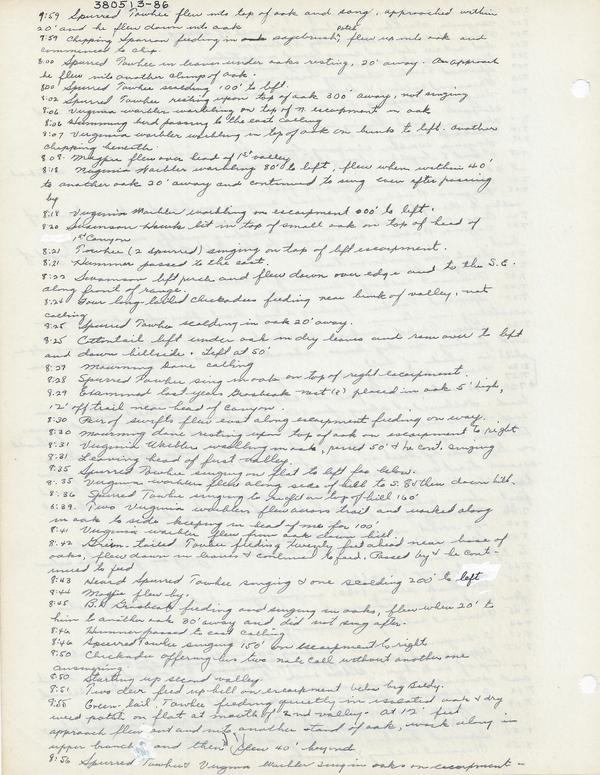 380513-86
7:59 Spurred Towhee flew into top of oak and sang, approached within
20' and he flew down into oak
7:59 Chipping Sparrow feeding in sagebrush, flew up into oak and
commenced to chip.
8:00 Spurred Towhee in leaves under oaks resting, 20' away. On approach
he flew into another clump of oak.
8:00 Spurred Towhee scolding 100' to left.
8:02 Spurred Towhee resting upon top of oak 300' away, not singing
8:06 Virginia warbler warbling on top of N. escarpment in oak
8:06 Humming bird passing to the east calling
8:07 Virginia warbler warbling in top of oak on bank to left. Another
chipping beneath.
8:08 Magpie flew over head of 1st valley
8:18 Virginia Warbler warbling 80' to left, flew when within 40'
to another oak 20' away and continued to sing even after passing
by
8:18 Virginia Warbler warbling on escarpment to left.
8:20 Swainson Hawk lit in top of small oak on top of head of
1st Canyon
8:21 Towhee (2 Spurred) singing on top of left escarpment.
8:21 Hummer passed to the east.
8:22 Swainson left perch and flew down over edge and to the S.E.
along front of range.
8:24 Four long-tailed Chickadees feeding near bank of valley, not
calling
8:25 Spurred Towhee scolding in oak 20' away.
8:25 Cottontail left under oak in dry leaves and ran over to left
and down hillside. Left at 50'
8:27 Mourning dove calling
8:28 Spurred Towhee sing in oak on top of right escarpment.
8:29 Examined last years Grosbeak nest (?) placed in oak 5' high,
12' off trail near head of Canyon.
8:30 Pair of swifts flew east along escarpment feeding on way.
8:30 Mourning dove resting upon top of oak on escarpment to right
8:31 Virginia Warbler warbling in oak, 50' & he cont. singing
8:31 Leaving head of first valley.
8:35 Spurred Towhee singing on flat to left far below.
8:35 Virginia warblers flew along side of hill to S. & then down hill.
8:36 Spurred Towhee singing to right on top of hill 160'
8:39 Two Virginia warblers flew across trail and worked along
in oak to side keeping in lead of me for 100'.
8:41 Virginia warbler flew from oak down hill.
8:42 Green-tailed Towhee feeding near base of
oaks, flew down in leaves & continued to feed. Passed by & he cont-
inued to feed
8:43 Heard Spurred Towhee singing & one scolding 200' to left
8:44 Magpie flew by.
8:45 B.H. Grosbeak feeding and singing in oaks, flew when 20' to
him to another oak 30' away and did not sing after.
8:46 Hummer passed to east calling
8:46 Spurred Towhee singing 150' on escarpment to right
8:50 Chickadee offering his two note call without another one
answering.
8:50 Starting up second valley.
8:51 Two deer feed up hill on escarpment below big Baldy.
8:55 Green-tail. Towhee feeding quietly in isolated oak & dry
weed patch on flat at mouth of 2nd valley. At 12' feet
approach flew out and into another stand of oak, work along in
upper branches and then flew 40' beyond
8:56 Spurred Towhee & Virginia Warbler sing in oaks on escarpment -